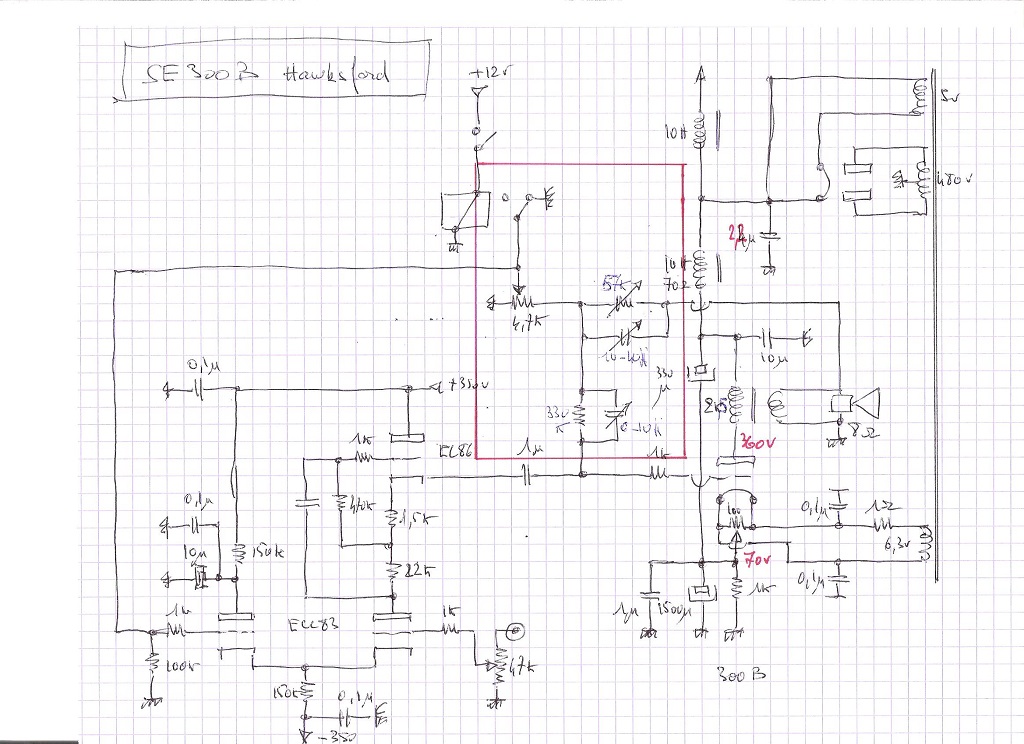 SE 300B Hawksford
+12v
5v
10H
480v
10H
70Ω
57k
4,7k
10-40
10µ
0,1µ
+350v
330
µ
330
K
2k5
8Ω
1k
EC86
1µ
1k
360v
0,1µ
470k
1,5k
100
0,1µ
1Ω
6,3v
10µ
150k
22k
70v
0,1µ
1k
1µ
1500µ
1k
ECC83
1k
47k
150k
0,1µ
-350
300B